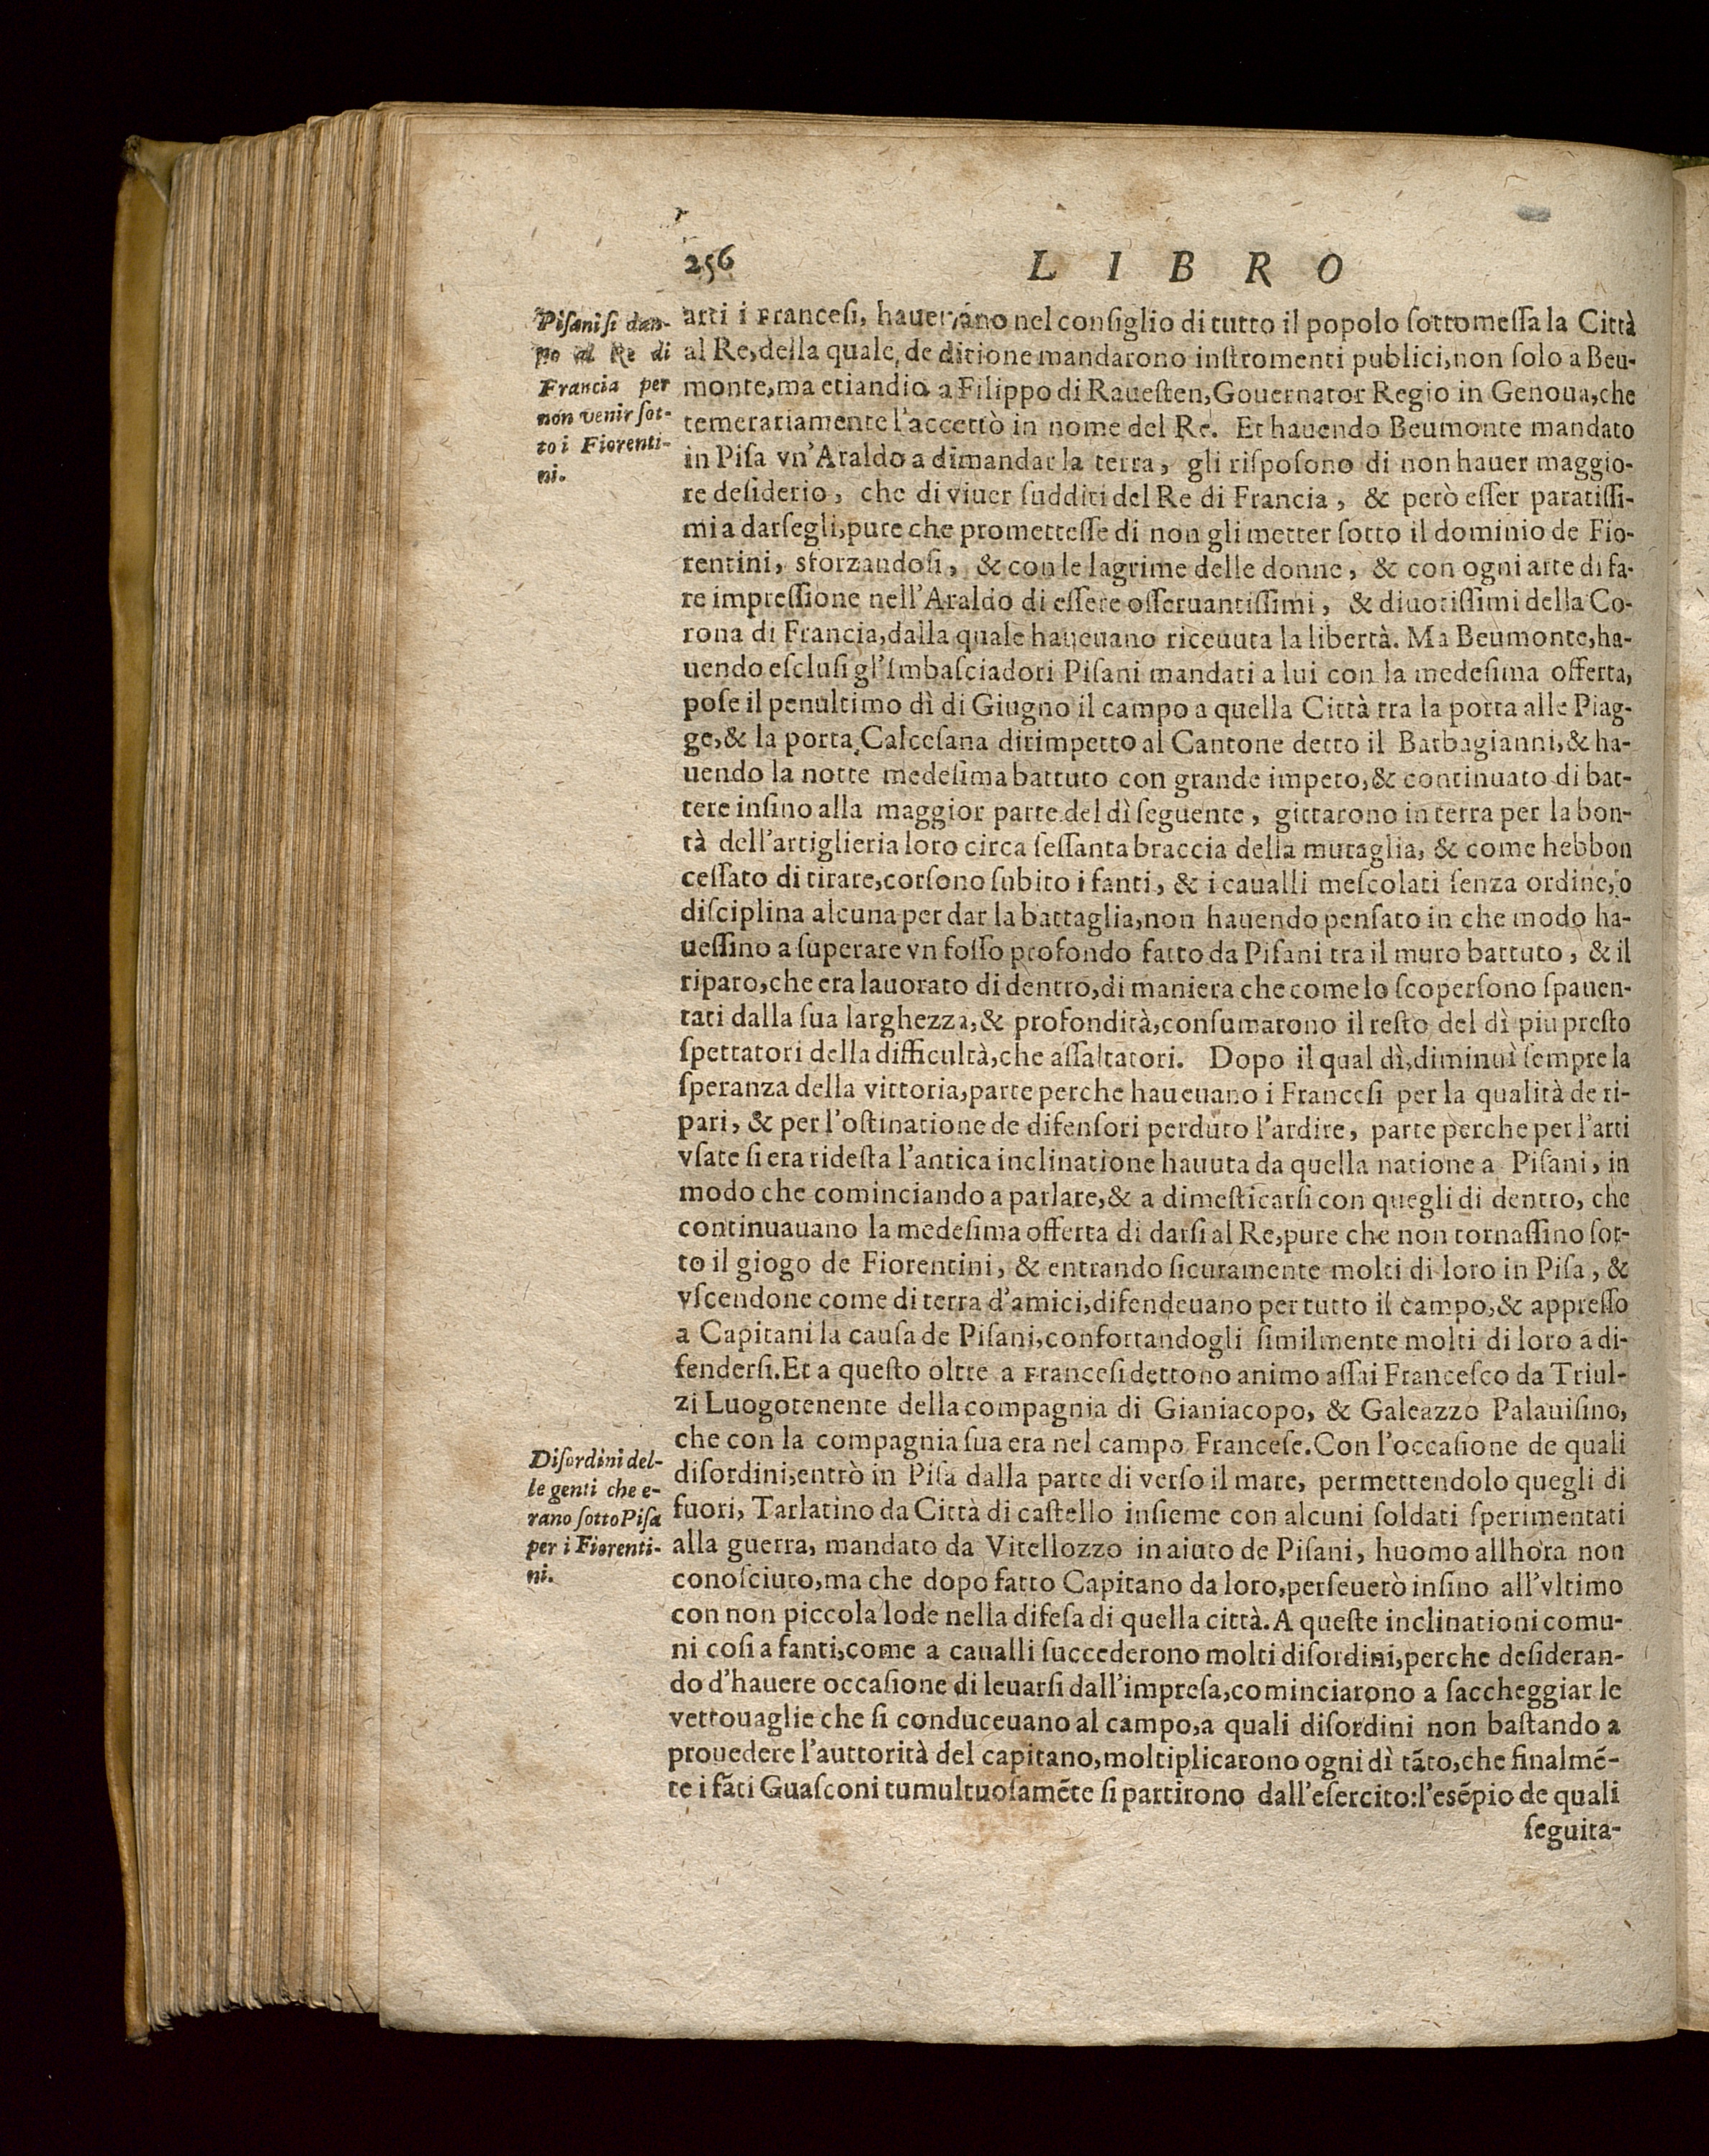 256
LIBRO
Piſani ſi dan-
no al Re di
Francia per
non venir ſot-
to i Fiorenti-
ni.
arti i Franceſi, haueuano nel conſiglio di tutto il popolo ſottomeſſa la Città
al Re, della quale, deditione mandarono inſtromenti publici, non ſolo a Beu-
monte, ma etiandio a Filippo di Raueſten, Gouernator Regio in Genoua, che
temerariamente l'accettò in nome del Re. Et hauendo Beumonte mandato
in Piſa vn'Araldo a dimandar la terra, gli riſpoſono di non hauer maggio-
re deſiderio, che di viuer ſudditi del Re di Francia, & però eſſer paratiſſi-
mi a darſegli, pure che prometteſſe di non gli metter ſotto il dominio de Fio-
rentini, sforzandoſi, & con le lagrime delle donne, & con ogni arte di fa-
re impreſſione nell'Araldo di eſſere oſſeruantiſſimi, & diuotiſſimi della Co-
rona di Francia, dalla quale haueuano riceuuta la libertà. Ma Beumonte, ha-
uendo eſcluſi gl'imbaſciadori Piſani mandati a lui con la medeſima offerta,
poſe il penultimo dì di Giugno il campo a quella Città tra la porta alle Piag-
ge, & la porta Calceſana dirimpetto al Cantone detto il Barbagianni, & ha-
uendo la notte medeſima battuto con grande impeto, & continuato di bat-
tere inſino alla maggior parte del dì ſeguente, gittarono in terra per la bon-
tà dell'artiglieria loro circa ſeſſanta braccia della muraglia, & come hebbon
ceſſato di tirare, corſono ſubito i fanti, & i caualli meſcolati ſenza ordine, o
diſciplina alcuna per dar la battaglia, non hauendo penſato in che modo ha-
ueſſino a ſuperare vn foſſo profondo fatto da Piſani tra il muro battuto, & il
riparo, che era lauorato di dentro, di maniera che come lo ſcoperſono ſpauen-
tati dalla ſua larghezza, & profondità, conſumarono il reſto del dì piu preſto
ſpettatori della difficultà, che aſſaltatori. Dopo il qual dì, diminuì ſempre la
ſperanza della vittoria, parte perche haueuano i Franceſi per la qualità de ri-
pari, & per l'oſtinatione de difenſori perduto l'ardire, parte perche per l'arti
vſate ſi era rideſta l'antica inclinatione hauuta da quella natione a Piſani, in
modo che cominciando a parlare, & a dimeſticarſi con quegli di dentro, che
continuauano la medeſima offerta di darſi al Re, pure che non tornaſſino ſot-
to il giogo de Fiorentini, & entrando ſicuramente molti di loro in Piſa, &
vſcendone come di terra d'amici, difendeuano per tutto il campo, & appreſſo
a Capitani la cauſa de Piſani, confortandogli ſimilmente molti di loro a di-
fenderſi. Et a queſto oltre a Franceſi dettono animo aſſai Franceſco da Triul-
zi Luogotenente della compagnia di Gianiacopo, & Galeazzo Palauiſino,
che con la compagnia ſua era nel campo Franceſe. Con l'occaſione de quali
diſordini, entrò in Piſa dalla parte di verſo il mare, permettendolo quegli di
fuori, Tarlatino da Città di caſtello inſieme con alcuni ſoldati ſperimentati
alla guerra, mandato da Vitellozzo in aiuto de Piſani, huomo allhora non
conoſciuto, ma che dopo fatto Capitano da loro, perſeuerò inſino all'vltimo
con non piccola lode nella difeſa di quella città. A queſte inclinationi comu-
ni coſi a fanti, come a caualli ſuccederono molti diſordini, perche deſideran-
do d'hauere occaſione di leuarſi dall'impreſa, cominciarono a ſaccheggiar le
vettouaglie che ſi conduceuano al campo, a quali diſordini non baſtando a
prouedere l'auttorità del capitano, moltiplicarono ogni dì tãto, che finalmẽ-
te i fãti Guaſconi tumultuoſamẽte ſi partirono dall'eſercito: l'eſẽpio de quali
Diſordini del-
le genti che e-
rano ſotto Piſa
per i Fiorenti-
ni.
ſeguita-